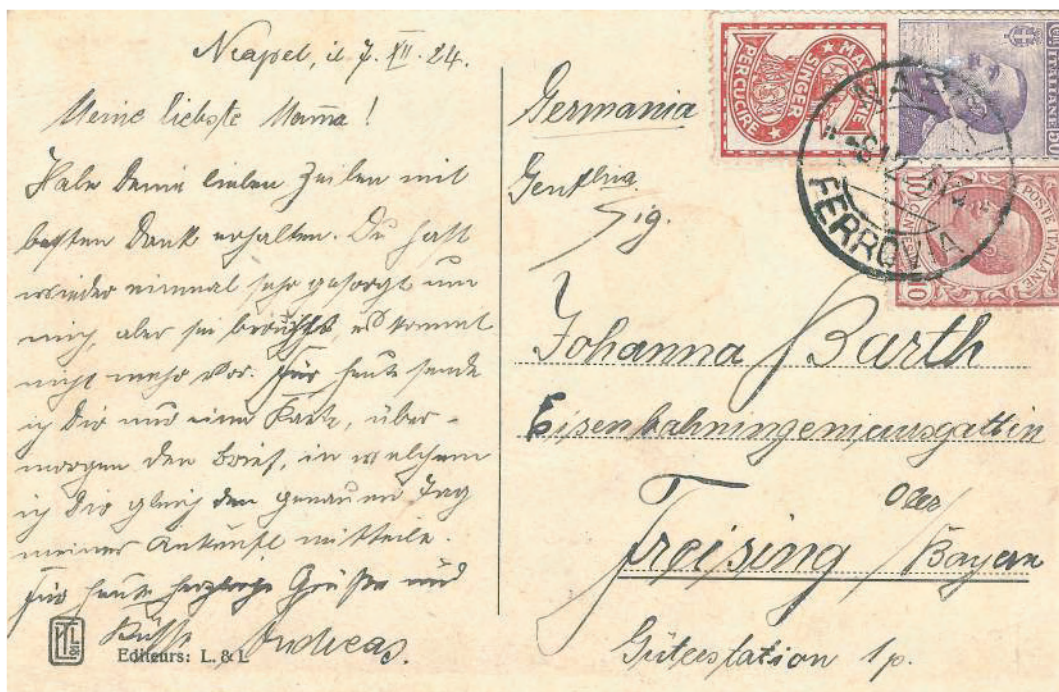 Neapel, d 7. XII. 24.
Meine liebste Mama!
Habe Deine lieben Zeilen mit
besten Dank erhalten. Du hast
wieder einmal sehr gesorgt um
mich, aber sei es kommt
nicht mehr vor. Für heute sende
ich Dir nur eine Karte, über-
morgen den Brief, in welchem
ich Dir gleich den genauen Tag
meiner Ankunft mitteile.
Für heute herzliche Grüße und
Küsse Andreas.
Editeurs: L. & L
Germania
Sig.
Johanna Barth
Eisenbahningenieursgattin
Freising / Ober
Bayern
Güterstation 1p.
MACCHINE
SINGER
PER CUCIRE
POSTE ITALIANE
10 CENT 10
POSTE ITALIANE 50
FERROVIA